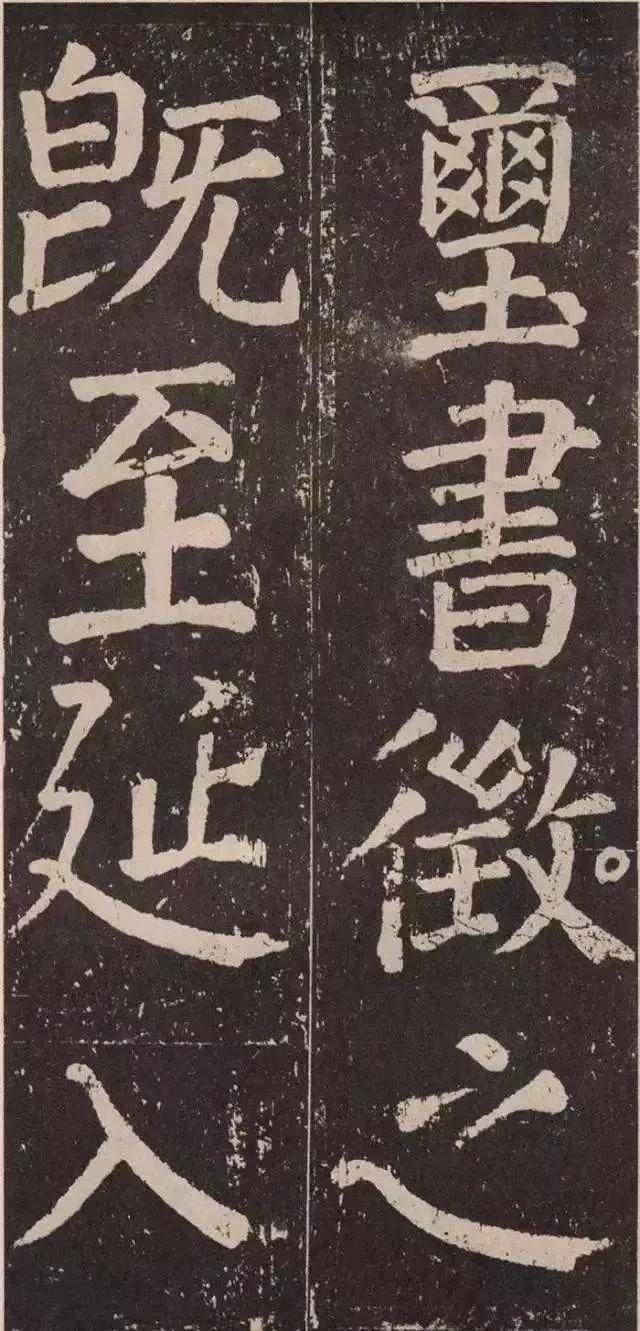 璽書徵之。
既至延入